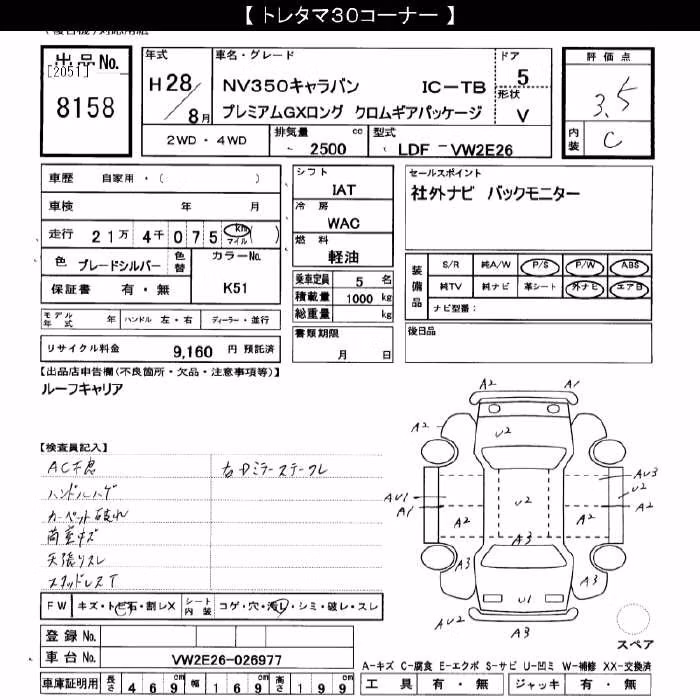 【 トレタマ30コーナー 】
出品No.
[2051]
8158
年式
H28/8月
車名・グレード
NV350キャラバン IC-TB
プレミアムGXロング クロムギアパッケージ
ドア
5
形状
V
評価点
3.5
内装
C
2WD・4WD
排気量 2500 cc
型式 LDF -VW2E26
車歴 自家用・( )
車検 年 月
走行 21万 4千 075 km マイル ( )
色 ブレードシルバー 色替 カラーNo.
保証書 有・無 K51
モデル年式 年 ハンドル 左・右 ディーラー・並行
リサイクル料金 9,160 円 預託済
シフト
IAT
冷房
WAC
燃料
軽油
乗車定員 5 名
積載量 1000 kg
総重量 kg
書類期限
月 日
セールスポイント
社外ナビ バックモニター
装備品
S/R 純A/W P/S P/W ABS
純TV 純ナビ 革シート 外ナビ エアB
ナビ型番:
後日品
【出品店申告欄(不良箇所・欠品・注意事項等)】
ルーフキャリア
【検査員記入】
AC不良
右Dミラーステークレ
ハンドルハゲ
カーペット破れ
荷室キズ
天張りスレ
スタッドレスT
FW キズ・トビ石・割レX シート内装 コゲ・穴・汚レ・シミ・破レ・スレ
登録No.
車台No. VW2E26-026977
車庫証明用 長さ 469 cm 幅 169 cm 高さ 199 cm
A2 A1
A2 U2 A2
AU3
AU1 U2 U2
A1 A2 A2 A2
A3
A3 A3
U1
AU2 A3
スペア
A-キズ C-腐食 E-エクボ S-サビ U-凹ミ W-補修 XX-交換済
工具 有・無 ジャッキ 有・無